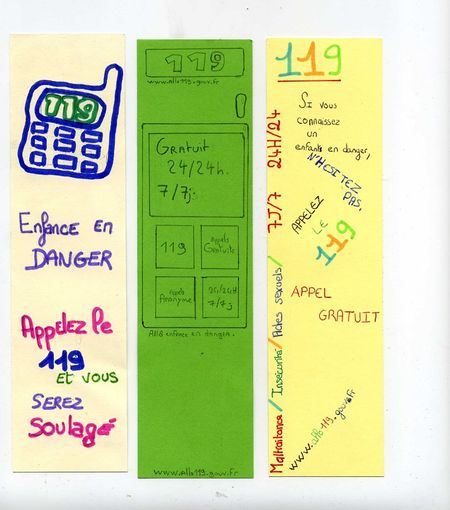 119
Enfance en
DANGER
Appelez le
119
ET VOUS
SEREZ
Soulagé
119
www.allo119.gouv.fr
GRATUIT
24/24h.
7/7j
119
Appels
Gratuits
Appels
Anonyme
24/24H
7/7j
Allô enfance en danger.
www.allo119.gouv.fr
119
Si vous
connaissez
un
enfants en danger,
N'HESITEZ
PAS.
APPELEZ
LE
119
APPEL
GRATUIT
Maltraitance / Insécurité / sexuels / 7J/7 24H/24
www.allo119.gouv.fr